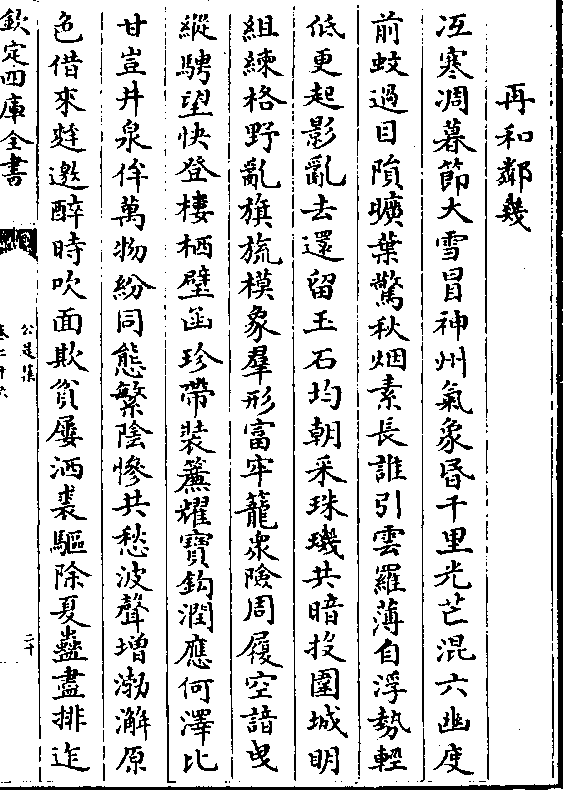 再和鄰幾
冱寒凋暮節大雪冒神州氣象昏千里光芒混六幽度
前蚊過目隕曠葉驚秋烟素長誰引雲羅薄自浮勢輕
低更起影亂去還留玉石均朝采珠璣共暗投圍城明
組練格野亂旗旒模象羣形富牢籠衆險周履空諳曳
縱騁望快登樓栖壁函珍帶裝簾耀寶鈎潤應何澤比
甘豈井泉侔萬物紛同態繁陰慘共愁波聲增渤澥原
色借來麰邀醉時吹面欺貧屢洒裘驅除夏蠱盡排迮
欽定四庫全書
公是集
卷二十六
二十